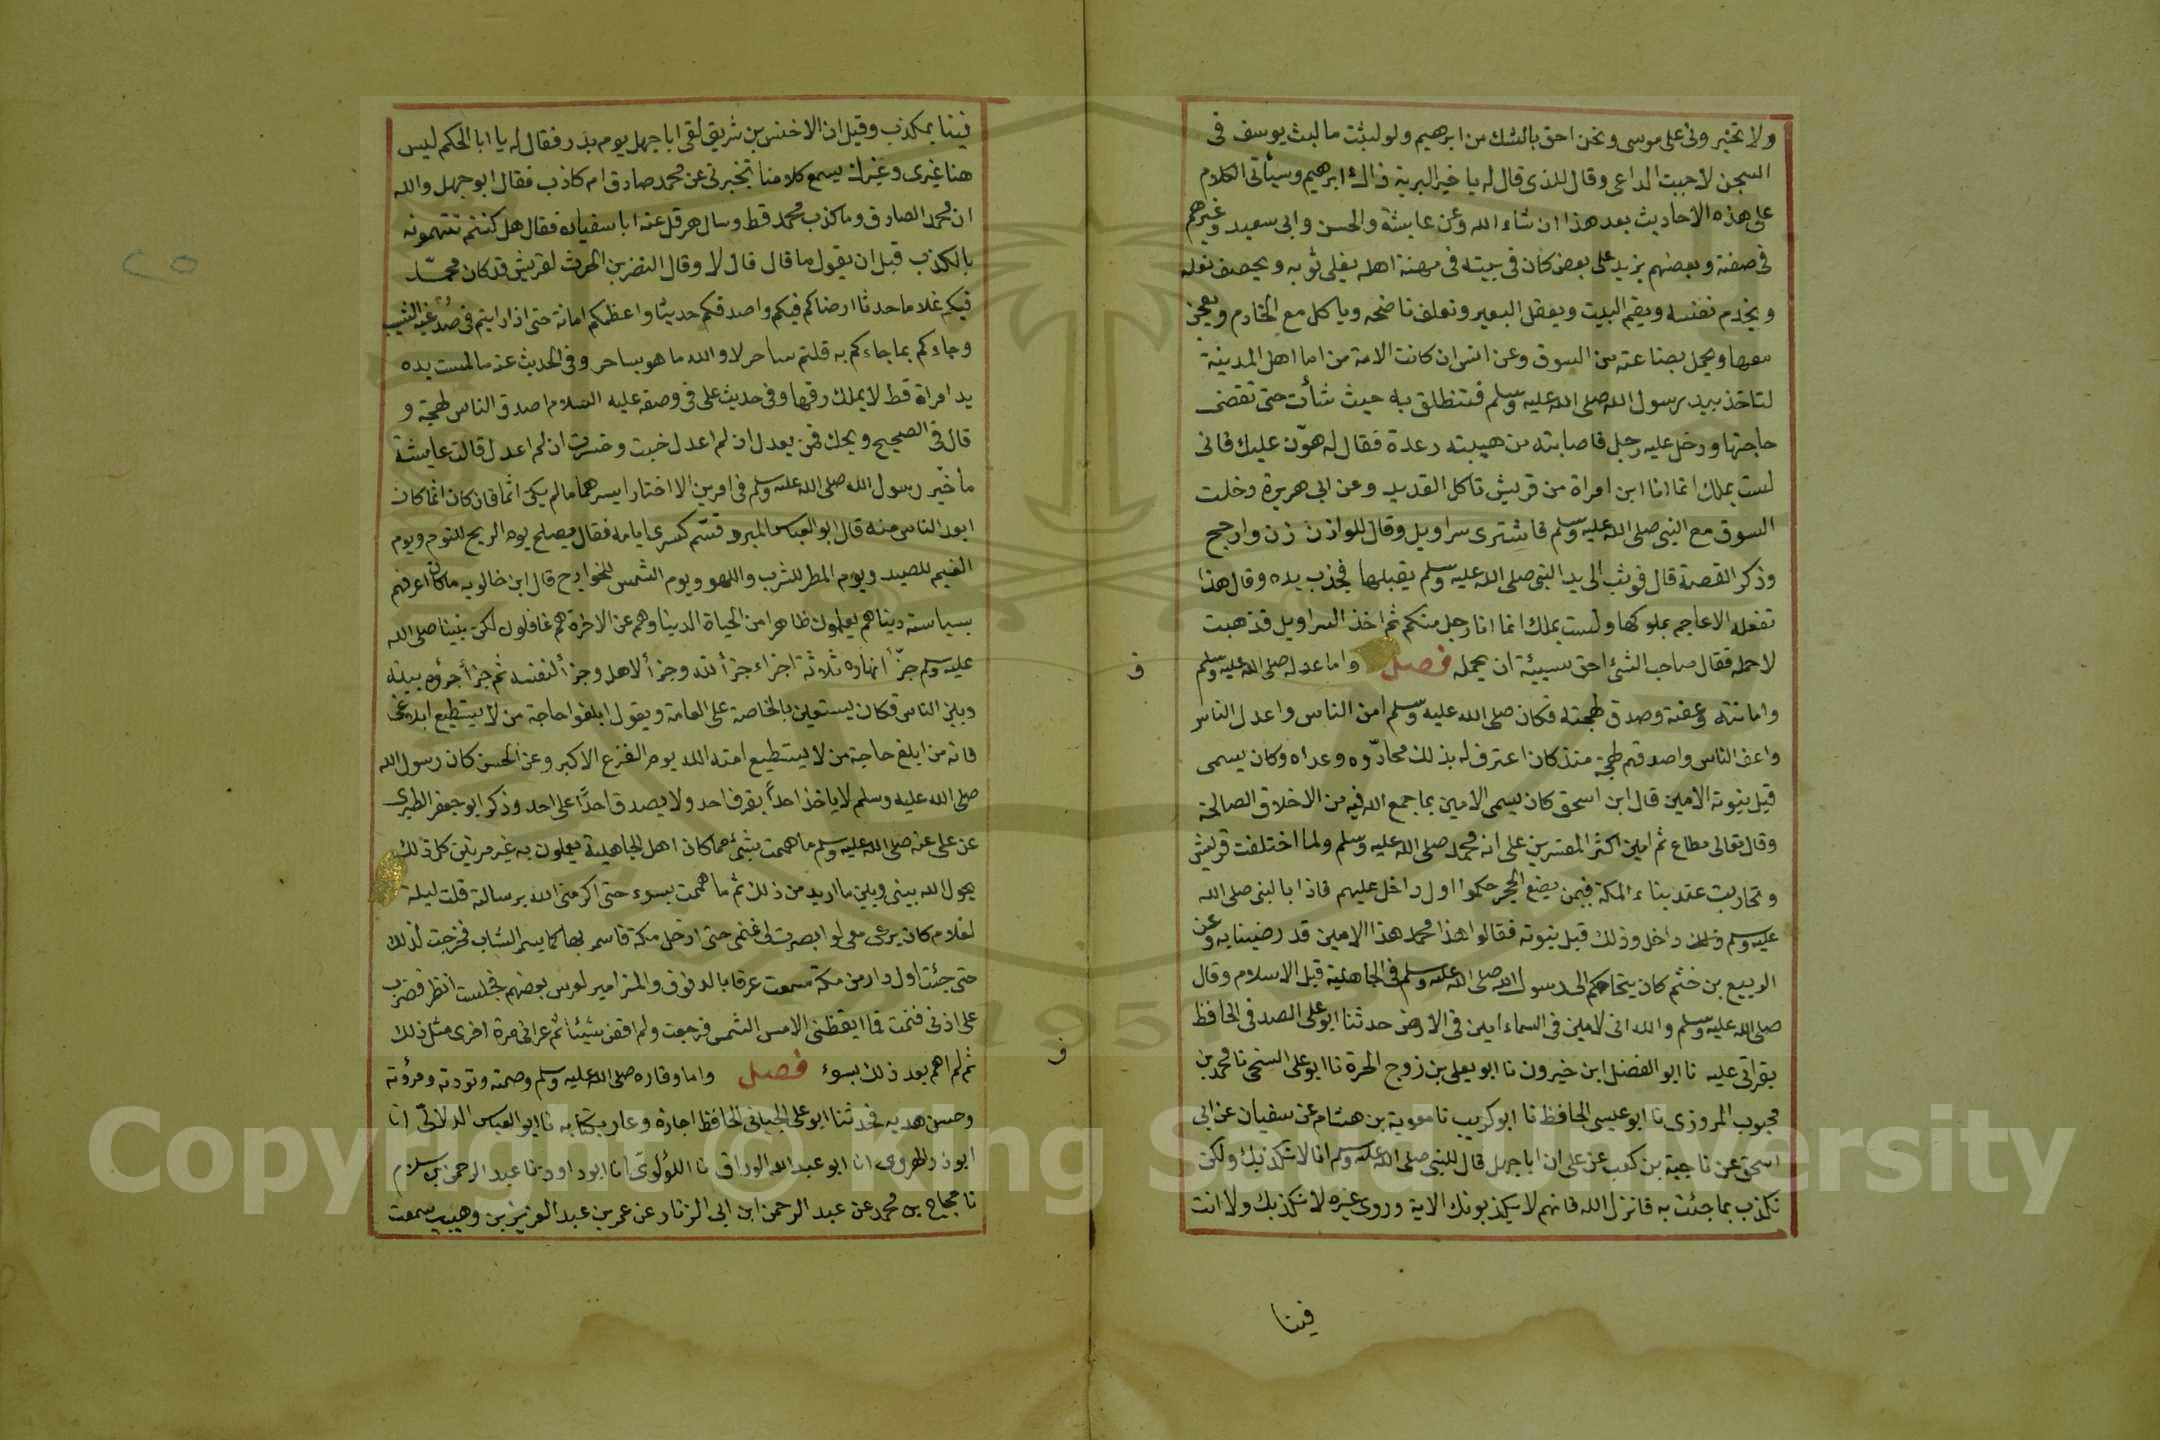 ولا تخيروني على موسى ونحن احق بالشك من ابرهيم ولو لبثت ما لبث يوسف في
السجن لاجبت الداعي وقال للذي قال له يا خير البرية ذاك ابرهيم وسيأتي الكلام
على هذه الاحاديث بعد هذا ان شاء الله وعن عايشة والحسن وابي سعيد وغيرهم
في صفته وبعضهم يزيد على بعض كان في بيته في مهنة اهله يفلي ثوبه ويخصف نعله
ويخدم نفسه ويقم البيت ويعقل البعير ويعلف ناضحه وياكل مع الخادم ويعجن
معها ويحمل بضاعته من السوق وعن انس ان كانت الامة من اما اهل المدينة
لتاخذ بيد رسول الله صلى الله عليه وسلم فتنطلق به حيث شأت حتى تقضى
حاجتها ودخل عليه رجل فاصابته من هيبته رعدة فقال له هوّن عليك فانى
لست بملك انما انا ابن امراة من قريش تاكل القديد وعن ابي هريرة دخلت
السوق مع النبي صلى الله عليه وسلم فاشترى سراويل وقال للوازن زن وارجح
وذكر القصة قال فوثب الى يد النبي صلى الله عليه وسلم يقبلها فجذب يده وقال هذا
تفعله الاعاجم بملوكها ولست بملك انما انا رجل منكم ثم اخذ السراويل فذهبت
لاحمله فقال صاحب الشئ احق بشيئه ان يحمله فصل واما عدله صلى الله عليه وسلم
وامانته وعفته وصدق لهجته فكان صلى الله عليه وسلم امن الناس واعدل الناس
واعف الناس واصدقهم لهجة منذ كان اعترف له بذلك محادّوه وعداه وكان يسمى
قبل نبوته الامين قال ابن اسحق كان يسمى الامين بما جمع الله فيه من الاخلاق الصالحة
وقال تعالى مطاع ثم امين اكثر المفسرين على انه محمد صلى الله عليه وسلم ولما اختلفت قريش
وتحاربت عند بناء المكة فيمن يضع الحجر حكموا اول داخل عليهم فاذا بالنبى صلى الله
عليه وسلم داخل وذلك قبل نبوته فقالوا هذا محمد هذا الامين قد رضينا به وعن
الربيع بن خثم كان يتحاكم الى رسول الله صلى الله عليه وسلم في الجاهلية قبل الاسلام وقال
صلى الله عليه وسلم والله اني لامين في السماء امين في الارض حدثنا ابو على الصدفى الحافظ
بقراتى عليه نا ابو الفضل ابن خيرون نا ابو يعلى بن زوج الحرة نا ابو على السنجى نا محمد بن
محبوب المروزى نا ابو عيسى الحافظ نا ابو كريب نا معوية بن هشام عن سفيان عن ابي
اسحق عن ناجية بن كعب عن على ان ابا جهل قال للنبي صلى الله عليه وسلم انا لا نكذبك ولكن
نكذب بما جئت به فانزل الله فانهم لا يكذبونك الاية وروى غيره لا نكذبك ولا انت
فينا
ف
فينا بمكذب وقيل ان الاخنس بن شريق لقى ابا جهل يوم بدر فقال له يا ابا الحكم ليس
هنا غيرى وغيرك يسمع كلامنا تخبرنى عن محمد صادق ام كاذب فقال ابو جهل والله
ان محمد الصادق وما كذب محمد قط وسال هرقل عنه ابا سفيان فقال هل كنتم تتهمونه
بالكذب قبل ان يقول ما قال قال لا وقال النضر بن الحرث لقريش قد كان محمّد
فيكم غلاما حدثا ارضاكم فيكم واصدقكم حديثا واعظمكم امانة حتى اذا رايتم في صدغيه الشيب
وجاءكم بما جاءكم به قلتم ساحر لا والله ما هو بساحر وفي الحديث عنه ما لمست يده
يد امراة قط لا يملك رقها وفي حديث على في وصفه عليه السلام اصدق الناس لهجة و
قال في الصحيح ويحك فمن يعدل ان لم اعدل خبت وخسرت ان لم اعدل قالت عايشة
ما خيّر رسول الله صلى الله عليه وسلم في امرين الا اختار ايسرهما ما لم يكن اثما فان كان اثما كان
ابعد الناس منه قال ابو العباس المبرد قسّم كسرى ايامه فقال يصلح يوم الريح للنوم ويوم
الغيم للصيد ويوم المطر للشرب واللهو ويوم الشمس للحوايج قال ابن خالويه ما كان اعرفهم
بسياسة دنياهم يعلمون ظاهرا من الحياة الدنيا وهم عن الاخرة هم غافلون لكن نبينا صلى الله
عليه وسلم جزّأ نهاره ثلاثة اجزاء جزأ لله وجزأ لاهله وجزأ لنفسه ثم جزأ جزؤه بينه
وبين الناس فكان يستعين بالخاصة على العامة ويقول ابلغوا حاجة من لا يستطيع ابلاغى
فانه من ابلغ حاجة من لا يستطيع امنه الله يوم الفزع الاكبر وعن الحسن كان رسول الله
صلى الله عليه وسلم لا ياخذ احداً بقرف احد ولا يصدق احدًا على احد وذكر ابو جعفر الطبرى
عن على عنه صلى الله عليه وسلم ما هممت بشئ مما كان اهل الجاهلية يعملون به غير مرتين كل ذلك
يحول الله بيني وبين ما اريد من ذلك ثم ما هممت بسوء حتى اكرمنى الله برسالته قلت ليلة
لغلام كان يرعى معى لو ابصرت لى غنمى حتى ادخل مكة فاسمر بها كما يسمر الشاب فخرجت لذلك
حتى جئت اول دار من مكة سمعت عزفا بالدفوف والمزامير لعرس بعضهم فجلست انظر فضرب
على اذنى فنمت فما ايقظنى الا مس الشمس فرجعت ولم اقض شيئا ثم عرانى مرة اخرى مثل ذلك
ثم لم اهم بعد ذلك بسوء فصل واما وقاره صلى الله عليه وسلم وصمته وتودته ومروّته
وحسن هديه فحدثنا ابو على الجيانى الحافظ اجازة وعارضت بكتابه نا ابو العباس الدلائى انا
ابو ذر الهروى انا ابو عبد الله الوراق نا اللؤلوى نا ابو داود نا عبد الرحمن بن سلام
نا حجاج بن محمد عن عبد الرحمن ابن ابي الزناد عن عمر بن عبد العزيز بن وهيب سمعت
ف
Copyright © King Saud University
1957